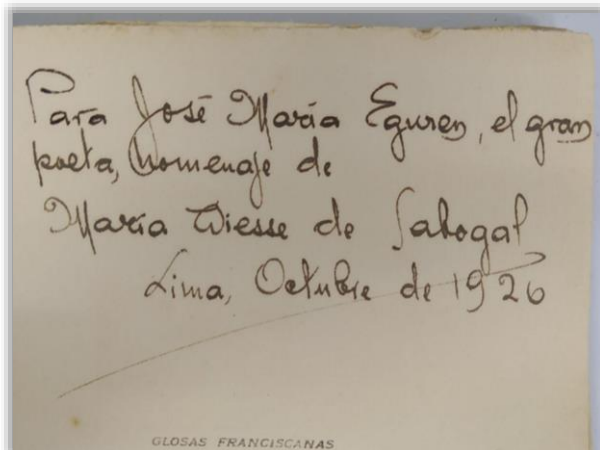 Para José María Eguren, el gran
poeta, homenaje de
María Wiesse de Sabogal
Lima, Octubre de 1926
GLOSAS FRANCISCANAS